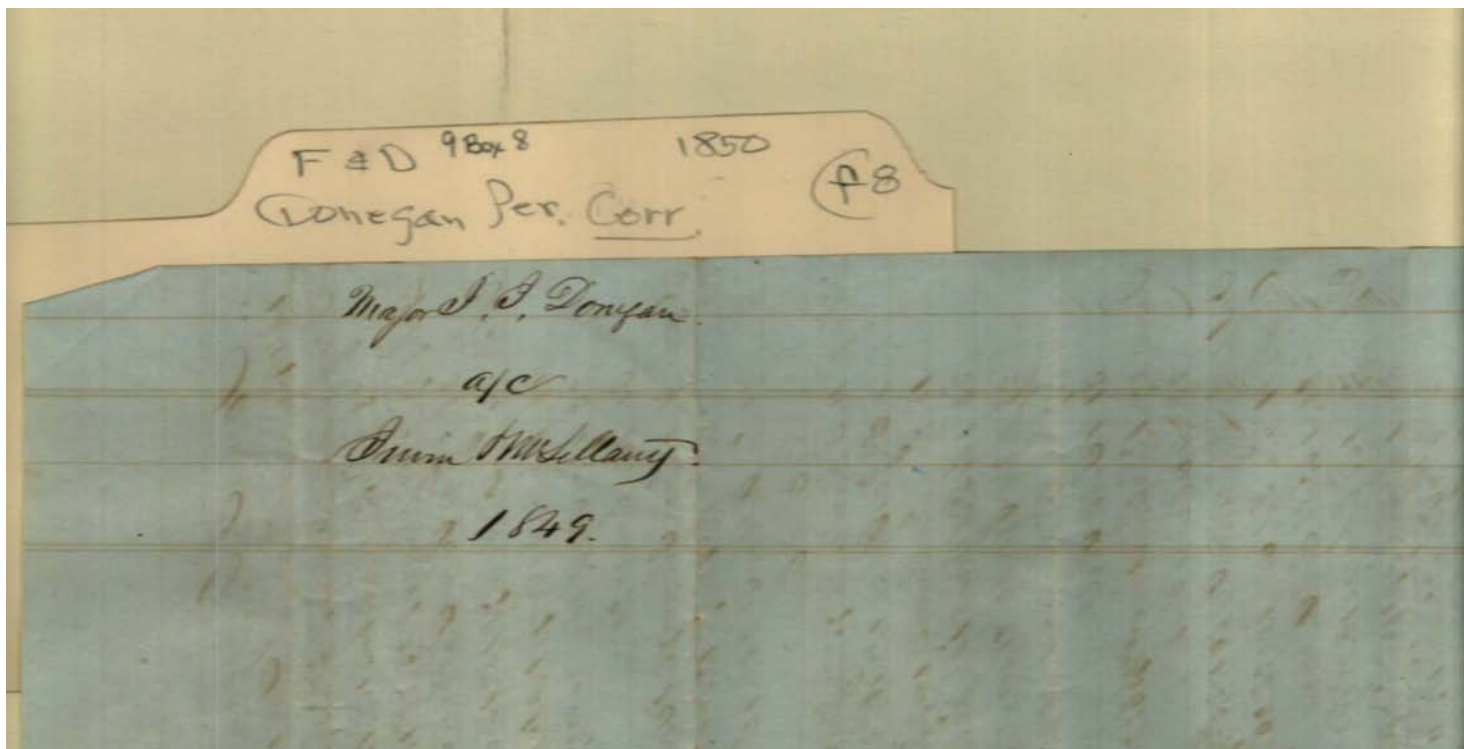 F & D 9 Box 8 1850
Donegan Per. Corr. f8
Major J. J. Donegan.
a/c
Irwin
1849.